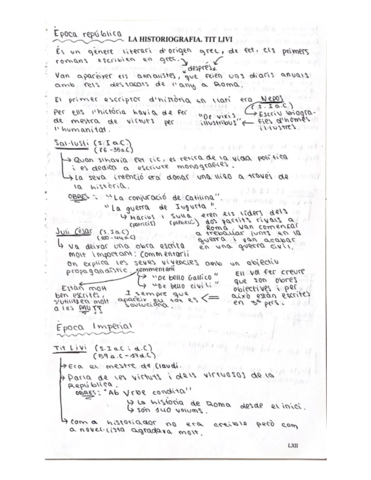 Època república
LA HISTORIOGRAFIA. TIT LIVI
És un gènere literari d'origen grec, de fet, els primers
romans escribien en grec.
després
Van aparèixer els annalistes, que feien uns diaris anuals
amb fets destacats de l'any a Roma.
El primer escriptor d'història en llatí era Nepos
(s. I a.C)
Per ells l'història havia de fer
de mestra de virtuts per
l'humanitat.
"De viris
illustribus"
Escriu biogra-
fies d'homes
il·lustres.
Sal·lusti (s. I a.C)
(86-35a.C)
Quan s'havia fet ric, es retira de la vida política
i es dedica a escriure monografies.
La seva intenció era donar una lliçó a través de
la història.
OBRES: "La conjuració de Catilina"
"La guerra de Jugurta"
Màrius i Sul·la eren els líders dels
dos partits rivals a
Roma van començar
a treballar junts en la
guerra i van acabar
en una guerra civil.
Juli Cèsar (s. I a.C)
(100-44a.C)
Va deixar una obra escrita
molt important: Commentarii
On explica les seves vivències amb un objectiu
propagandístic
commentarii
"De bello Gallico"
"De bello civili"
Estan molt
ben escrites,
I sempre que
apareix ell tot es
soluciona
Ell va fer creure
que són obres
objectives i per
això estan escrites
en 3ª pers.
Època Imperial
Tit Livi (s. I a.C i d.C)
(59 a.C-17d.C)
Era el mestre de Claudi.
Parla de les virtuts i dels virtuosos de la
República.
OBRES: "Ab Urbe condita"
La història de Roma desde el inici.
són 140 volums.
Com a historiador no era creïble però com
a novel·lista agradava molt.
LXII